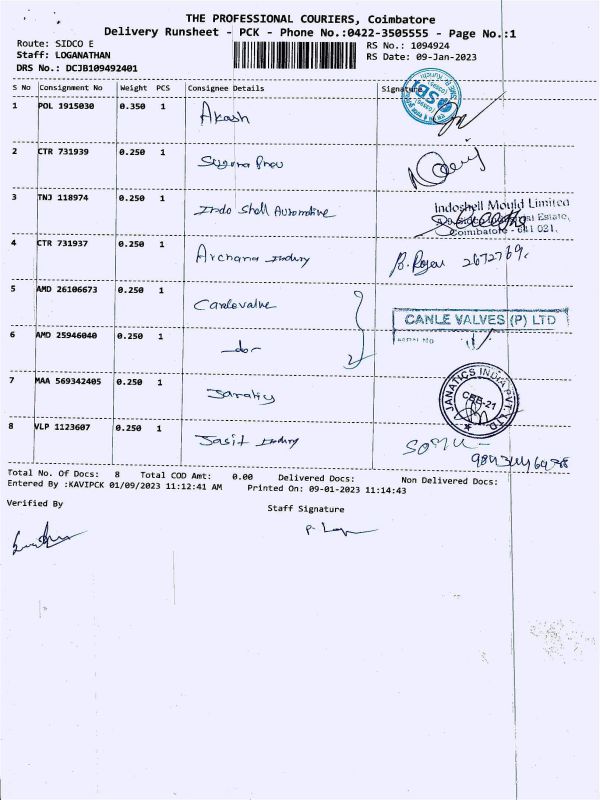 THE PROFESSIONAL COURIERS, Coimbatore
Delivery Runsheet - PCK - Phone No.:0422-3505555 - Page No.:1
Route: SIDCO E
RS No.: 1094924
Staff: LOGANATHAN
RS Date: 09-Jan-2023
DRS No.: DCJB109492401
S No Consignment No Weight PCS Consignee Details Signature
SBI
1 POL 1915030 0.350 1 Akash
2 CTR 731939 0.250 1
3 TNJ 118974 0.250 1 Indo Shell Automotive
Indoshell Mould Limited
Estate,
Coimbatore - 641 021.
4 CTR 731937 0.250 1 Archana Indury B. Rajan 2672769.
5 AMD 26106673 0.250 1 Canlevalve
CANLE VALVES (P) LTD
6 AMD 25946040 0.250 1 -do-
7 MAA 569342405 0.250 1
JANATICS INDIA PVT. LTD
CBE-21
8 VLP 1123607 0.250 1 Jasit Indury
Total No. Of Docs: 8 Total COD Amt: 0.00 Delivered Docs: Non Delivered Docs:
Entered By :KAVIPCK 01/09/2023 11:12:41 AM Printed On: 09-01-2023 11:14:43
Verified By
Staff Signature